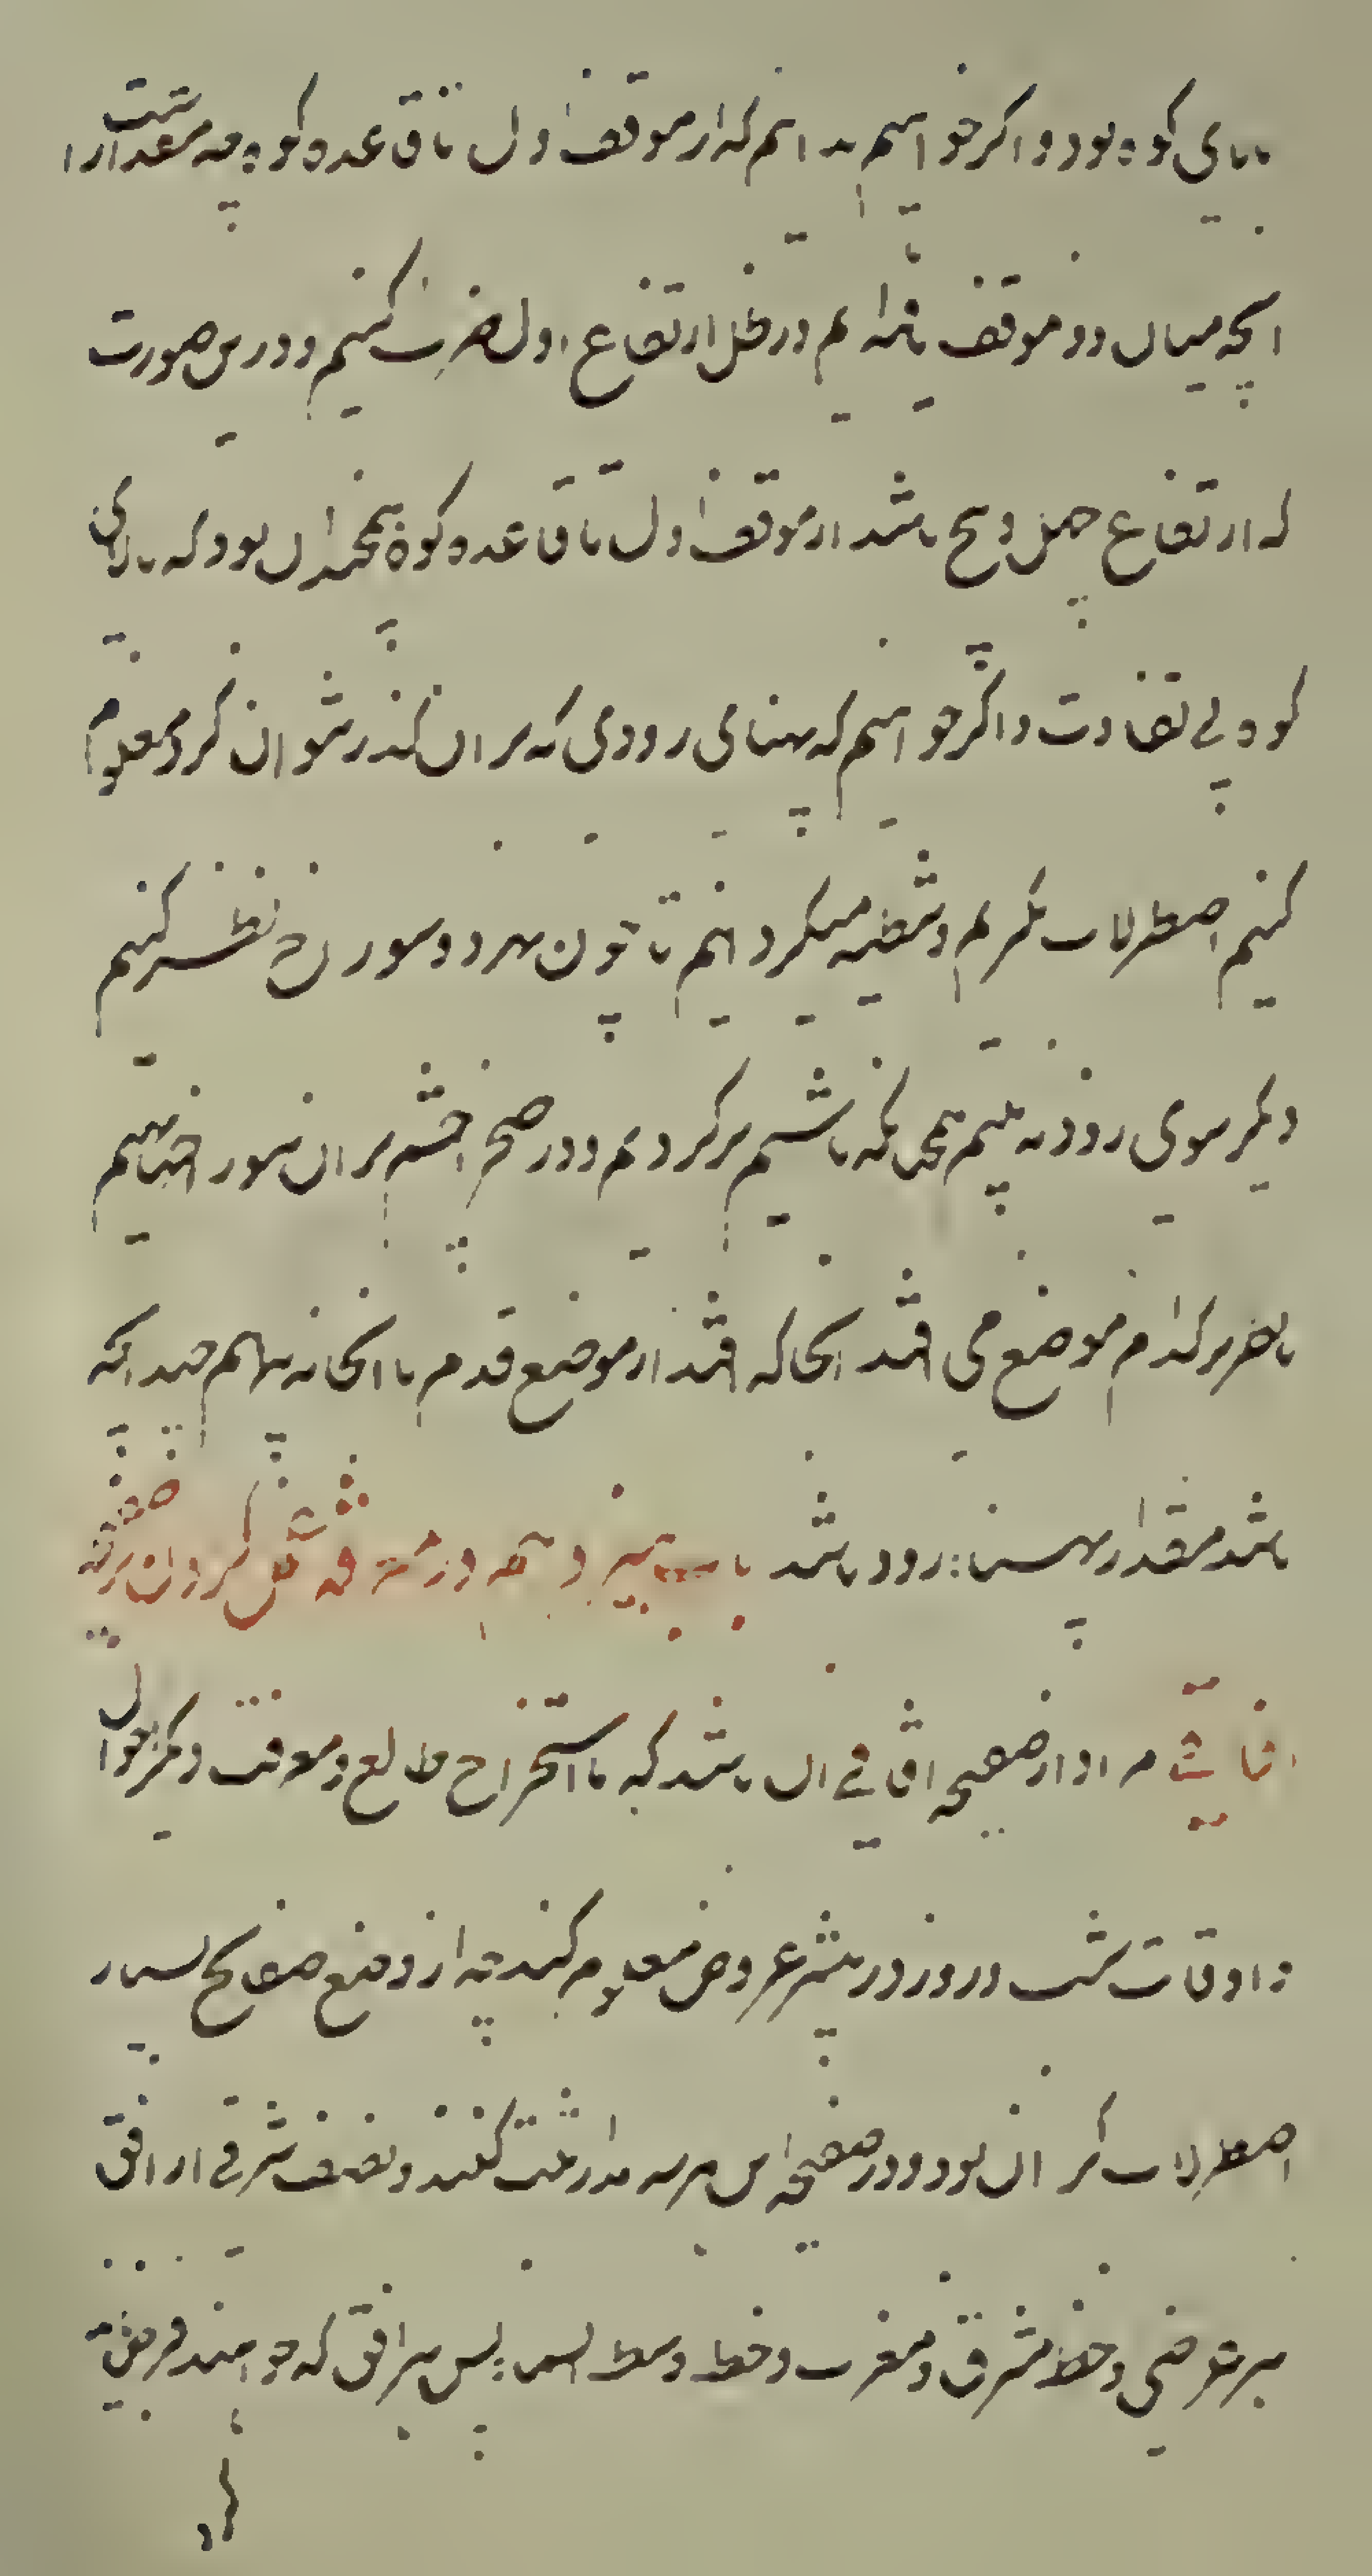 بالای کوه بود و اگر خواهیم بدانیم که از موقف اول تا قاعده کوه چه مقدارست از
آنچه میان دو موقف یافته‌ایم در ظل ارتفاع اول ضرب کنیم و درین صورت
که ارتفاع چهل و پنج باشد از موقف اول تا قاعده کوه همچندان بود که بالای
کوه بی تفاوت و اگر خواهیم که پهنای رودی که بران گذر نتوان کرد معلوم
کنیم اصطرلاب بگیریم و شظیه میگردانیم تا چون بهر دو سوراخ نظر کنیم
دیگر سوی رود ببینیم همچنانکه باشیم برگردیم و در صحرا چشم بران سوراخ نهیم
تا بصر بر کدام موضع می افتد آنجا که افتد از موضع قدم تا آنجا بپیماییم چندانکه
باشد مقدار پهنای رود باشد باب بیستم در معرفت عمل کردن بصفیحه
آفاقی مراد از صفیحه آفاقی آن باشد که تا استخراج طالع و معرفت دیگر احوال
و اوقات شب و روز در بیشتر عروض معلوم کنند چه از وضع صفایح بسیار
اصطرلاب گران بود و در صفیحه این هر سه مدار ثبت کنند و نصف شرقی از افق
هر عرضی و خط مشرق و مغرب و خط وسط السما پس هر افق که خواهند